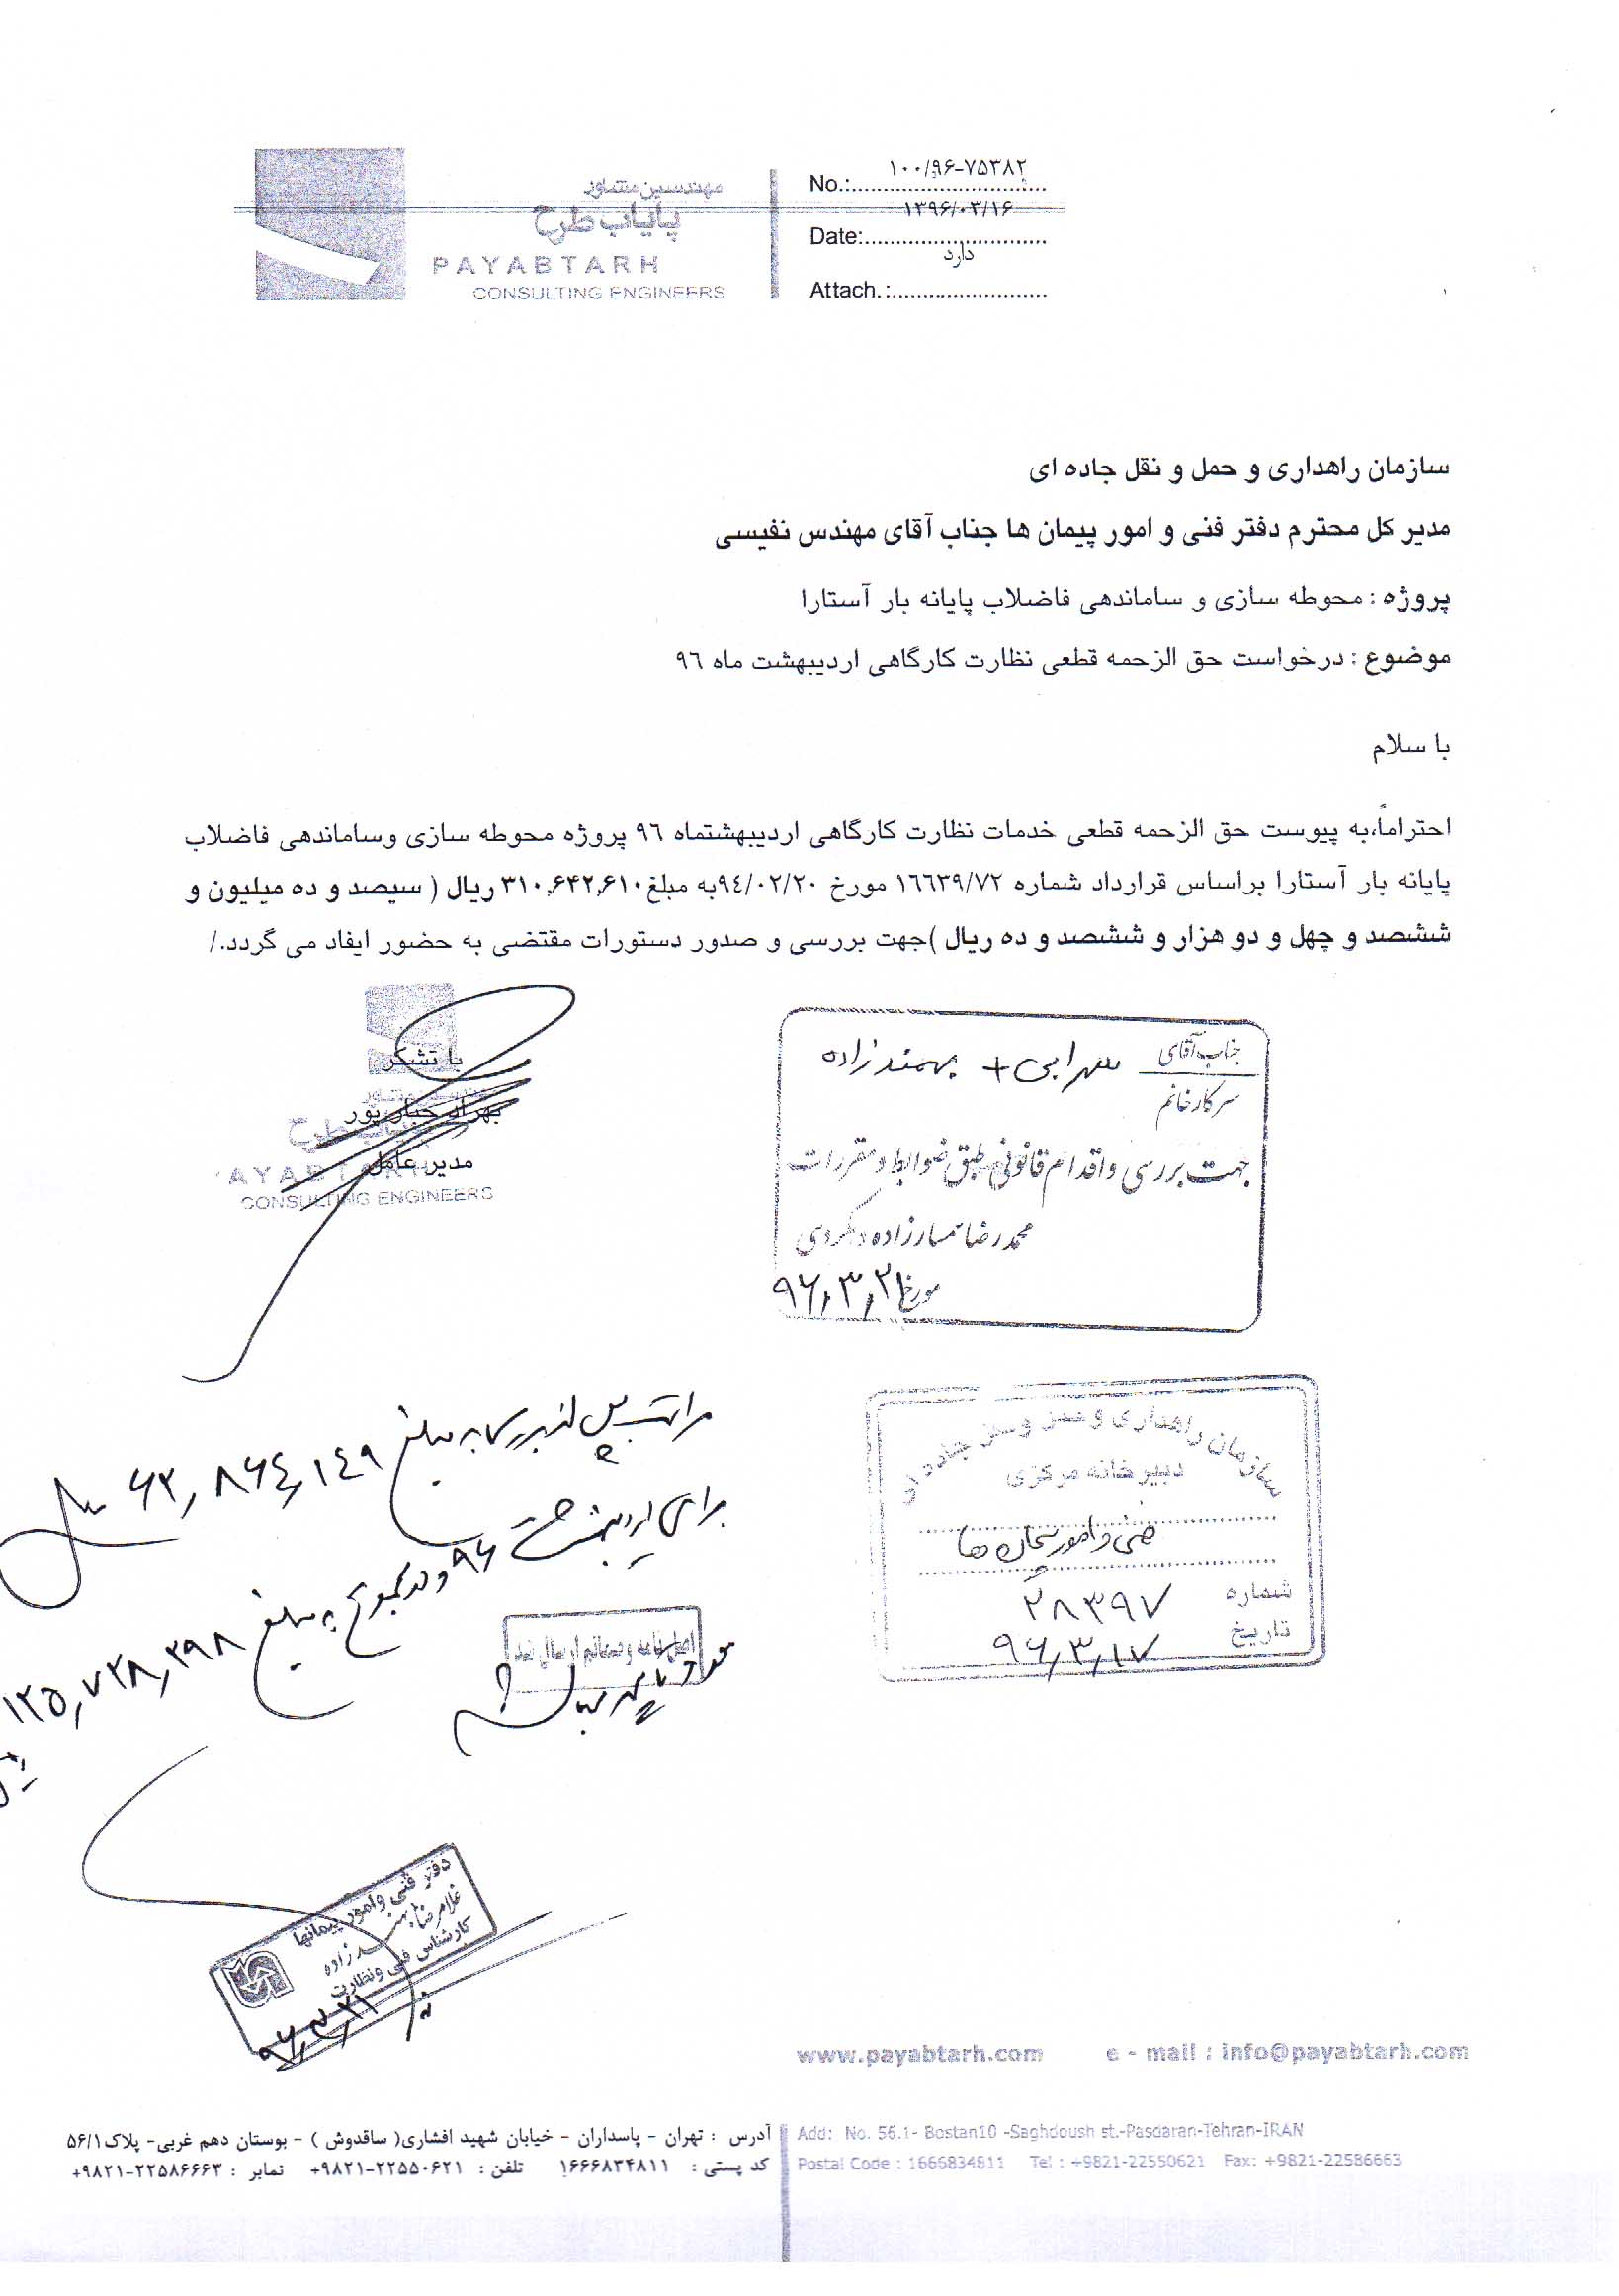 مهندسین مشاور
پایاب طرح
PAYABTARH
CONSULTING ENGINEERS
No.: ۱۰۰/۹۶-۷۵۳۸۲
Date: ۱۳۹۶/۰۳/۱۶
Attach.: دارد
سازمان راهداری و حمل و نقل جاده ای
مدیر کل محترم دفتر فنی و امور پیمان ها جناب آقای مهندس نفیسی
پروژه : محوطه سازی و ساماندهی فاضلاب پایانه بار آستارا
موضوع : درخواست حق الزحمه قطعی نظارت کارگاهی اردیبهشت ماه ۹٦
با سلام
احتراماً،به پیوست حق الزحمه قطعی خدمات نظارت کارگاهی اردیبهشتماه ۹٦ پروژه محوطه سازی وساماندهی فاضلاب
پایانه بار آستارا براساس قرارداد شماره ۱٦٦۳۹/۷۲ مورخ ۹٤/۰۲/۲۰به مبلغ۳۱۰,۶۴۲,۶۱۰ ریال ( سیصد و ده میلیون و
ششصد و چهل و دو هزار و ششصد و ده ریال )جهت بررسی و صدور دستورات مقتضی به حضور ایفاد می گردد./
با تشکر
مدیر عامل
PAYABTARH
CONSULTING ENGINEERS
جناب آقای
سرکار خانم
سهرابی + بهمندزاده
جهت بررسی و اقدام قانونی طبق ضوابط و مقررات
محمدرضا
مورخ ۹۶,۳,۲۱
سازمان راهداری و حمل و نقل جاده ای
دبیرخانه مرکزی
فنی و امور پیمان ها
شماره ۲۸۳۹۷
تاریخ ۹۶,۳,۱۷
مراتب پس از بررسی به مبلغ ۶۲,۸۶٤,۱٤۹ ریال
برای اردیبهشت ۹۶ و در مجموع به مبلغ ۱۲۵,۷۲۸,۲۹۸
مورد تایید میباشد
دفتر فنی و امور پیمانها
غلامرضا
کارشناس فنی و نظارت
۹۶,۳,۲۱
www.payabtarh.com e - mail : info@payabtarh.com
آدرس : تهران - پاسداران - خیابان شهید افشاری( ساقدوش ) - بوستان دهم غربی- پلاک۵۶/۱
کد پستی : ۱۶۶۶۸۳۴۸۱۱ تلفن : ۲۲۵۵۰۶۲۱-۹۸۲۱+ نمابر : ۲۲۵۸۶۶۶۳-۹۸۲۱+
Add: No. 56.1- Bostan10 -Saghdoush st.-Pasdaran-Tehran-IRAN
Postal Code : 1666834811 Tel : +9821-22550621 Fax: +9821-22586663